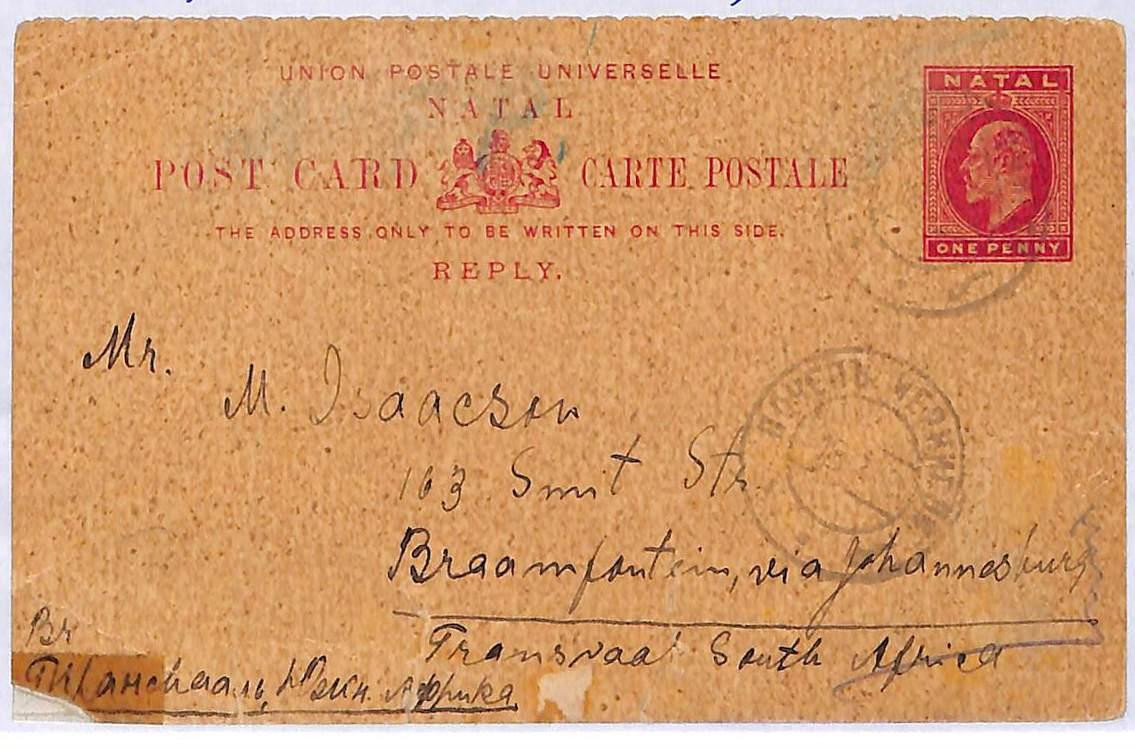 UNION POSTALE UNIVERSELLE
NATAL
NATAL
POST CARD CARTE POSTALE
THE ADDRESS ONLY TO BE WRITTEN ON THIS SIDE.
ONE PENNY
REPLY.
Mr.
M. Isaacson
163 Smit Str.
Braamfontein, via Johannesburg
Transvaal South Africa
Африка